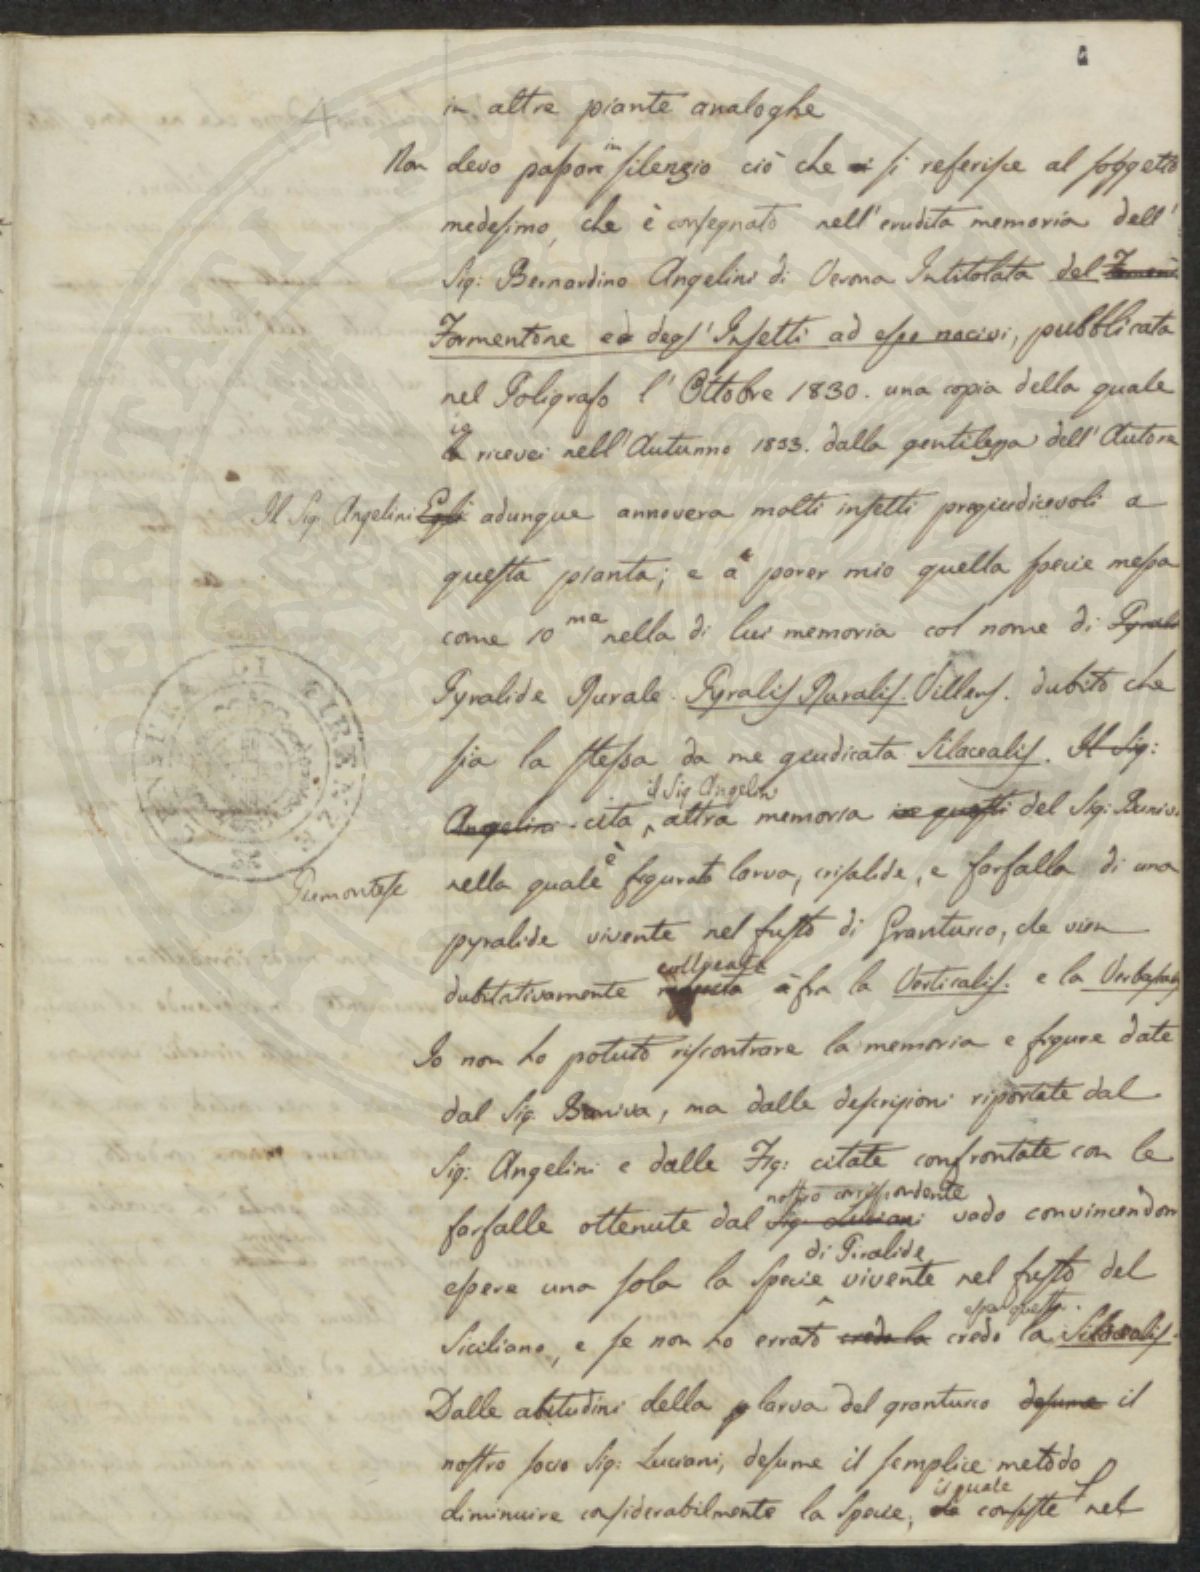 in altre piante analoghe
Non devo passare in silenzio ciò che si si referisce al soggetto
medesimo, che è consegnato nell'erudita memoria dell'
Sig: Bernardino Angelini di Verona Intitolata del
Formentone ed degl'Insetti ad esso nocivi, pubblicata
nel Poligrafo l'Ottobre 1830. una copia della quale
io ricevei nell'Autunno 1833. dalla gentilezza dell'Autore
Il Sig. Angelini Egli adunque annovera molti insetti pregiudicevoli a
questa pianta; e a parer mio quella specie messa
come 10 ma nella di lui memoria col nome di Pyrali
Pyralide Rurale. Pyralis Ruralis. Villers. dubito che
sia la stessa da me giudicata Silacealis. Il Sig:
Angelini cita il Sig Angelini altra memoria in questi del Sig:
Piemontese nella quale è figurato larva, crisalide, e farfalla di una
pyralide vivente nel fusto di Granturco, che vien
dubitativamente collocata fra la Verticalis. e la
Io non ho potuto riscontrare la memoria e figure date
dal Sig. Buniva, ma dalle descrizioni riportate dal
Sig: Angelini e dalle Fig: citate confrontate con le
farfalle ottenute dal nostro corrispondente Sig. Luciani vado convincendom
essere una sola la specie di Piralide vivente nel fusto del
Siciliano, e se non ho errato credo la credo esser questa. la Silacealis.
Dalle abitudini della larva del granturco desume il
nostro socio Sig: Luciani, desume il semplice metodo
diminuire considerabilmente la specie, il quale consiste nel